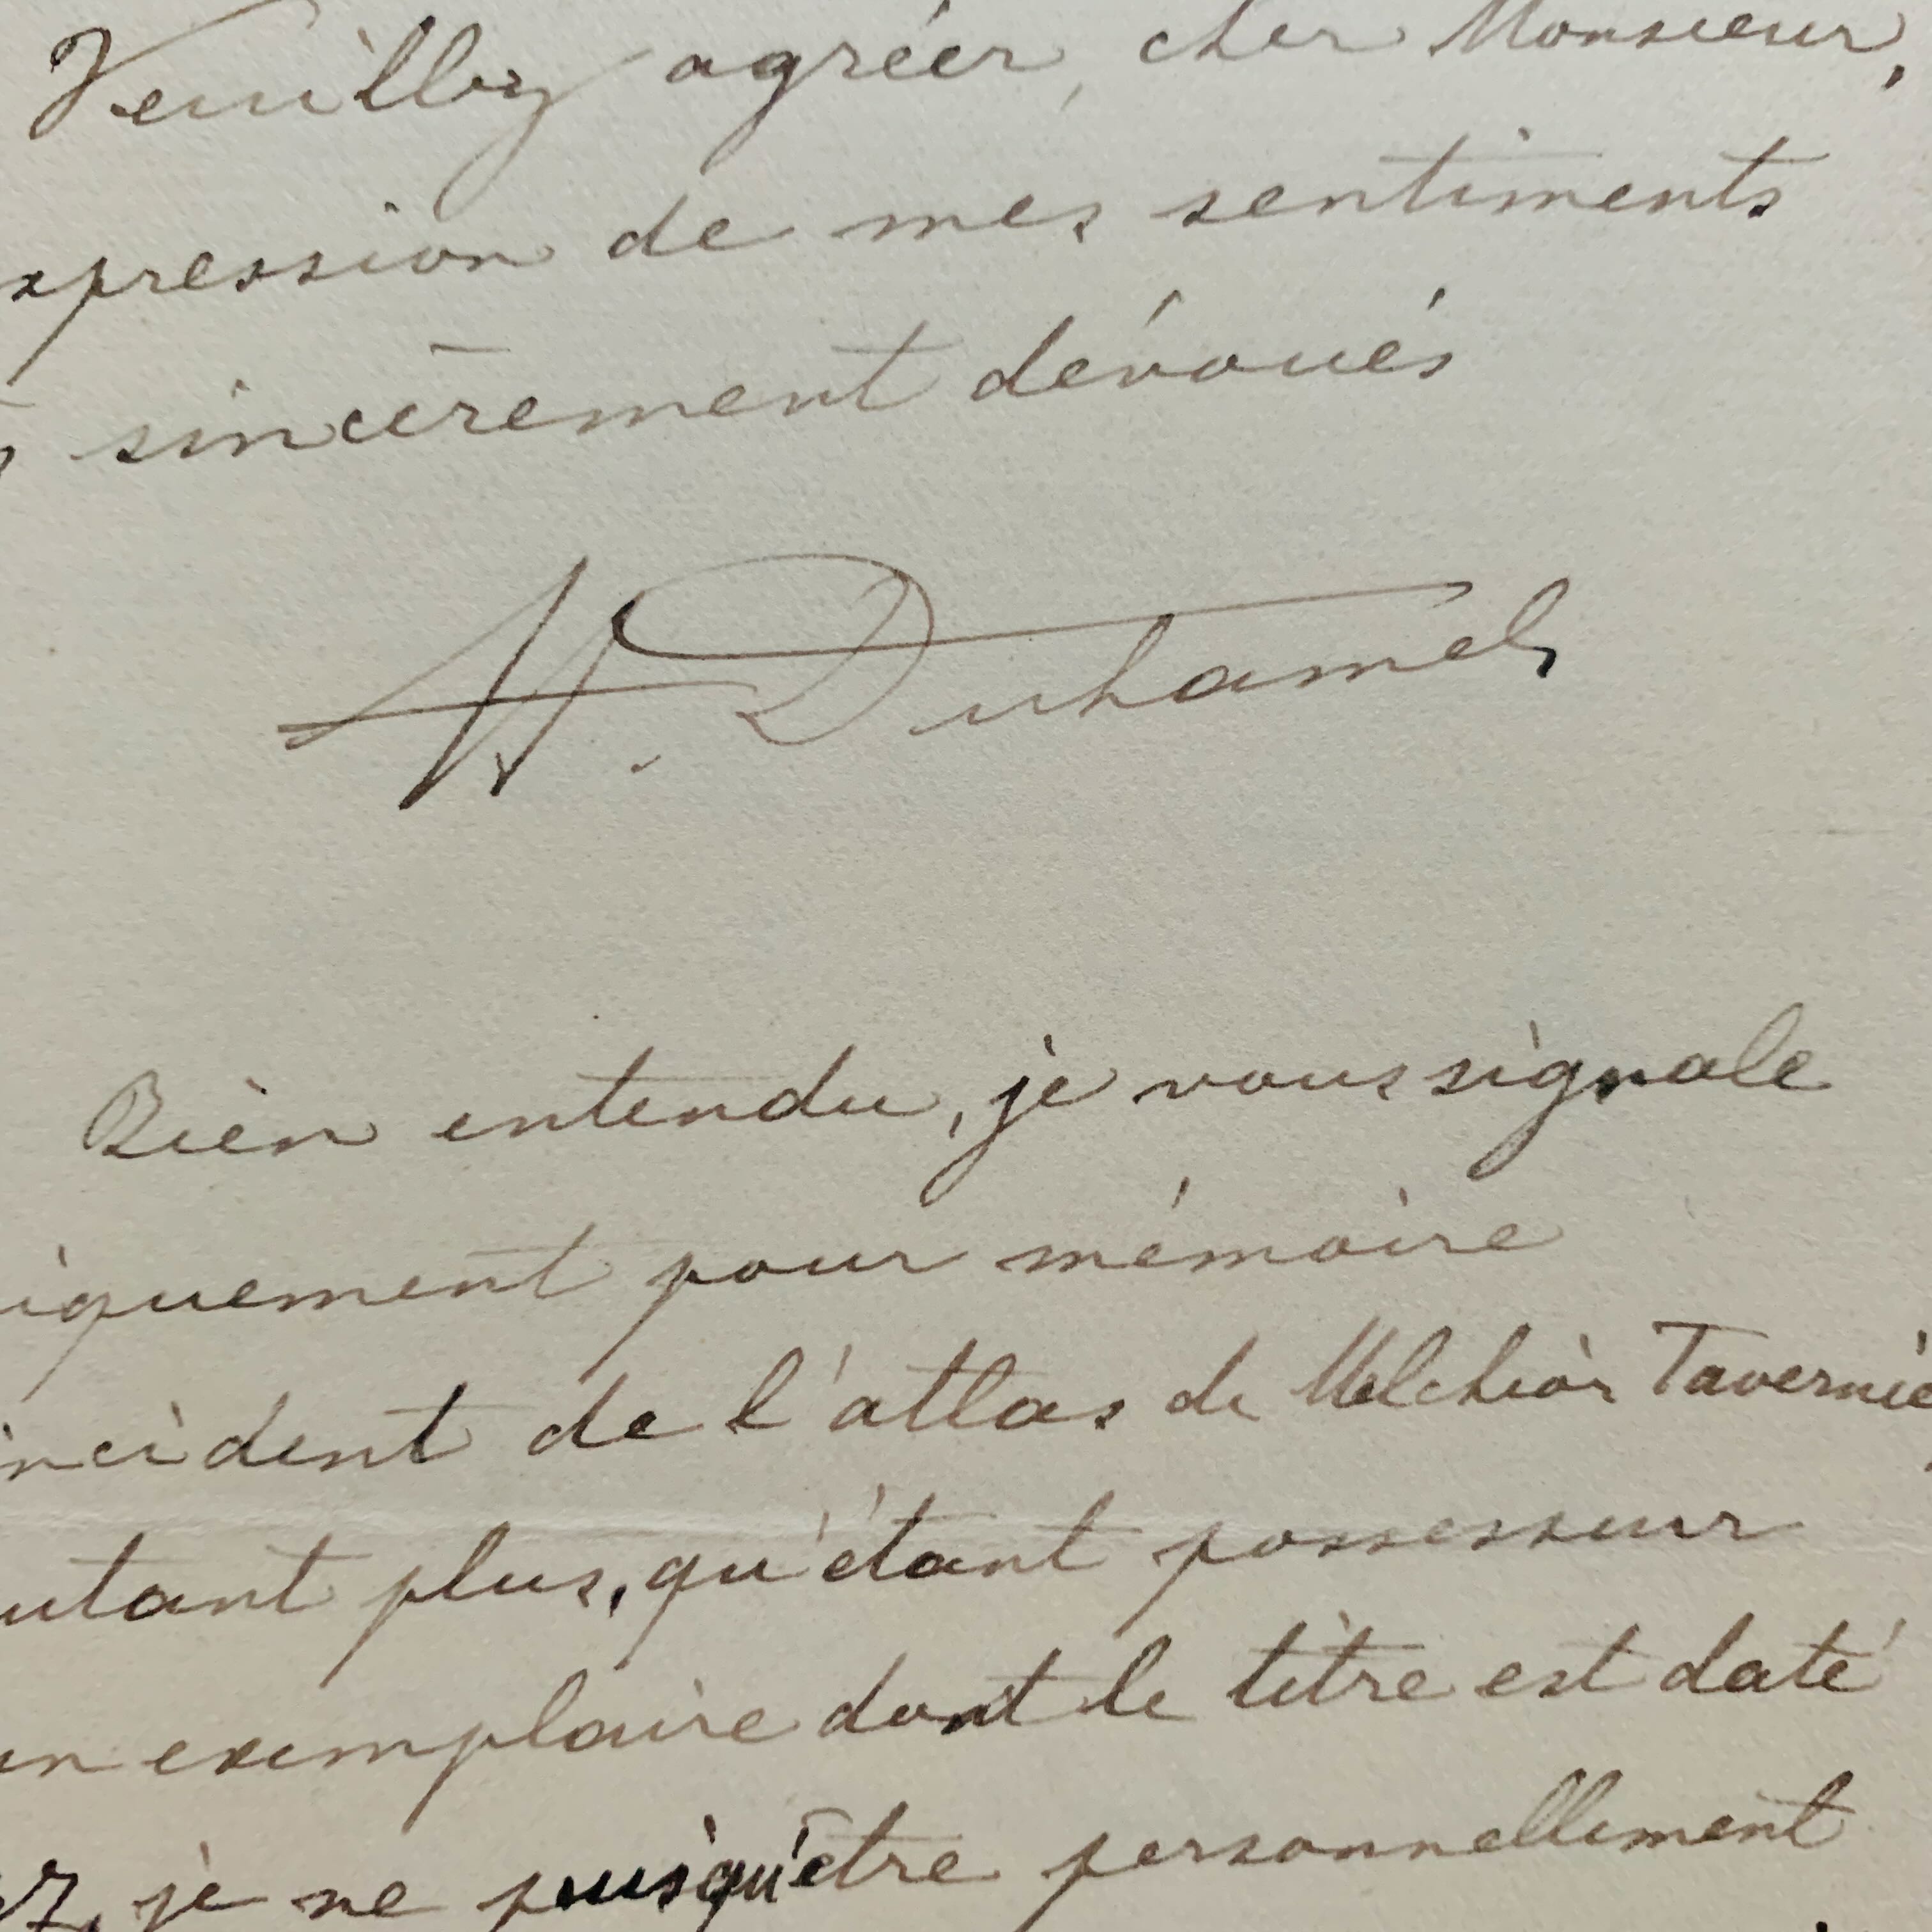 Veuillez agréer, cher Monsieur,
xpression de mes sentiments
sincèrement dévoués
H. Duhamel
Bien entendu, je vous signale
iquement pour mémoire
incident de l'atlas de Melchior Tavernie
utant plus, qu'étant possesseur
un exemplaire dont le titre est daté
je ne puis qu'être personnellement